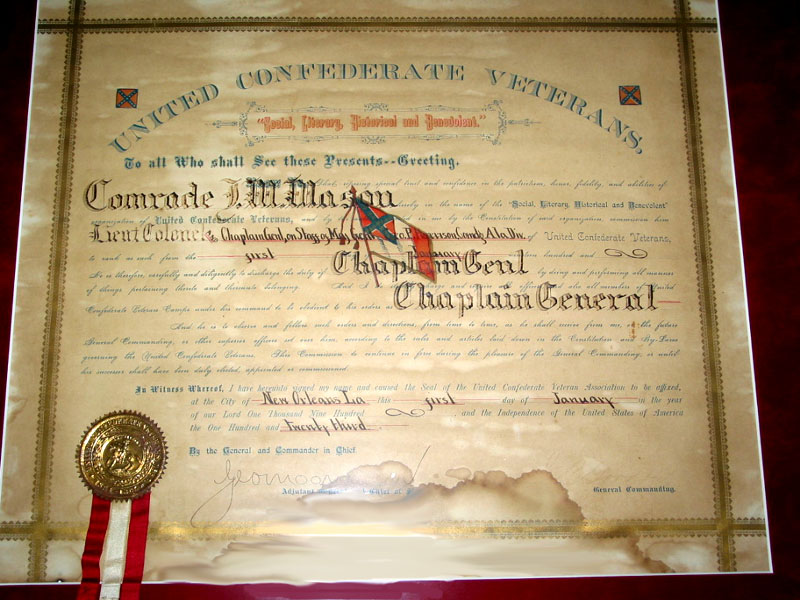 UNITED CONFEDERATE VETERANS,
"Social, Literary, Historical and Benevolent."
To all Who shall See these Presents--Greeting.
reposing special trust and confidence in the patriotism, valor, fidelity, and abilities of
Comrade J. M. Mason hereby in the name of the "Social, Literary, Historical and Benevolent"
organization of United Confederate Veterans, and by in me by the Constitution of said organization, commission him
Lieut Colonel & Chaplain Genl, on Staff of Maj Genl P. Harrison Comdg Ala Div. of United Confederate Veterans,
to rank as such from the first January hundred and
He is therefore, carefully and diligently to discharge the duty of Chaplain Genl by doing and performing all manner
of things pertaining thereto and thereunto belonging. And I also all members of United
Confederate Veteran Camps under his command to be obedient to his orders as Chaplain General
And he is to observe and follow such orders and directions, from time to time, as he shall receive from me, or the future
General Commanding, or other superior officers set over him, according to the rules and articles laid down in the Constitution and By-Laws
governing the United Confederate Veterans. This Commission to continue in force during the pleasure of the General Commanding, or until
his successor shall have been duly elected, appointed or commissioned.
In Witness Whereof, I have hereunto signed my name and caused the Seal of the United Confederate Veteran Association to be affixed,
at the City of New Orleans La this first day of January in the year
of our Lord One Thousand Nine Hundred , and the Independence of the United States of America
the One Hundred and Twenty third
By the General and Commander in Chief
Adjutant Chief of General Commanding.